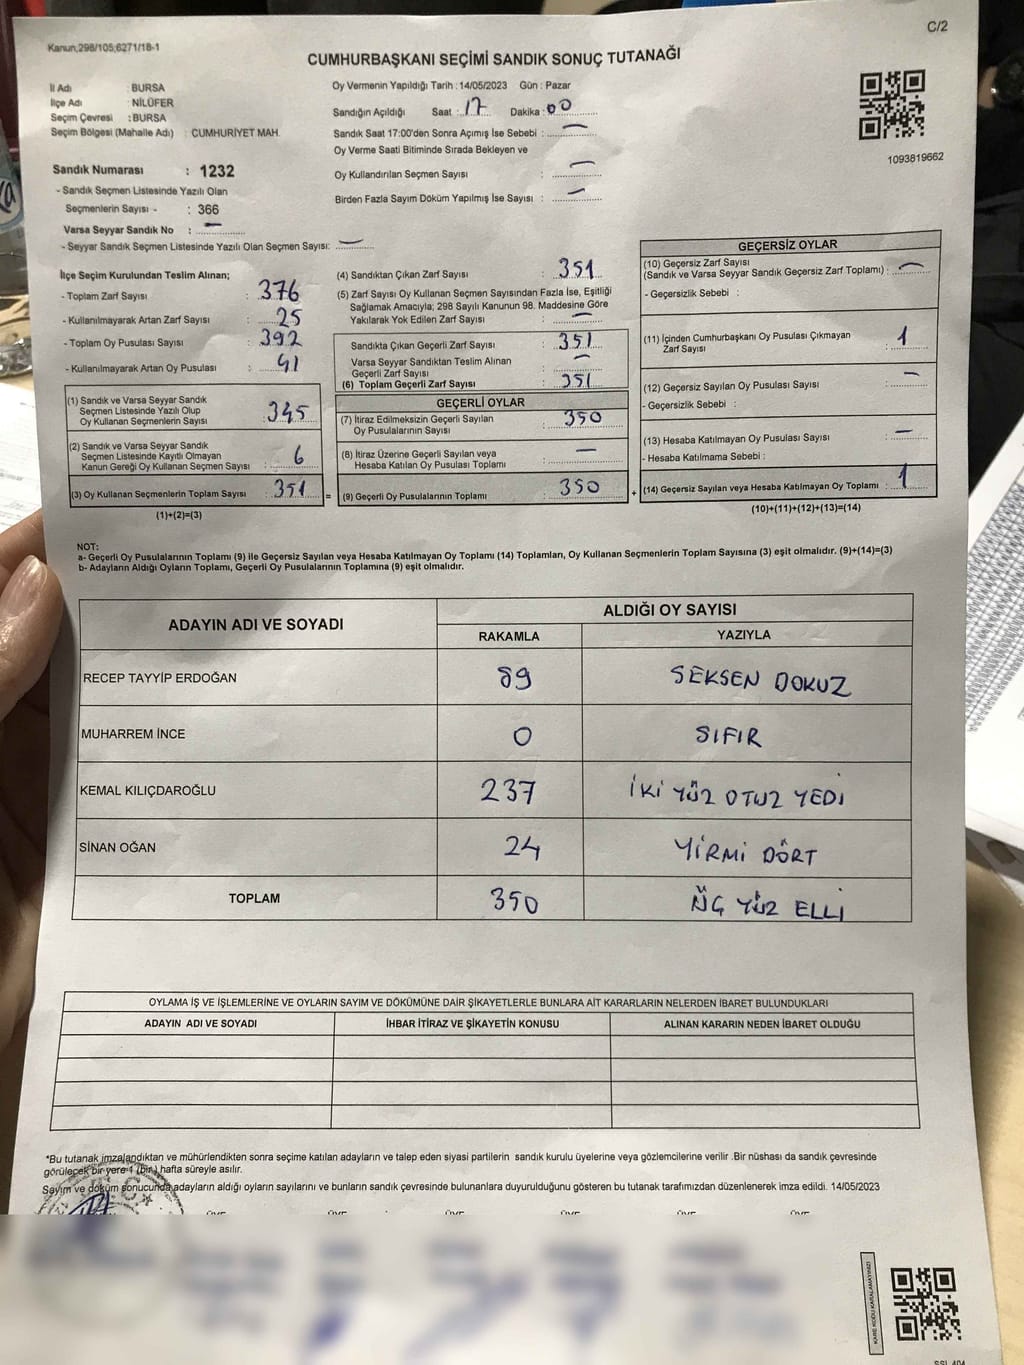 C/2
Kanun;298/105;6271/18-1
CUMHURBAŞKANI SEÇİMİ SANDIK SONUÇ TUTANAĞI
İl Adı : BURSA
İlçe Adı : NİLÜFER
Seçim Çevresi : BURSA
Seçim Bölgesi (Mahalle Adı) : CUMHURİYET MAH.
Sandık Numarası : 1232
- Sandık Seçmen Listesinde Yazılı Olan
Seçmenlerin Sayısı - : 366
Varsa Seyyar Sandık No : —
- Seyyar Sandık Seçmen Listesinde Yazılı Olan Seçmen Sayısı: —
Oy Vermenin Yapıldığı Tarih : 14/05/2023 Gün : Pazar
Sandığın Açıldığı Saat : 17 Dakika : 00
Sandık Saat 17:00'den Sonra Açımış İse Sebebi : —
Oy Verme Saati Bitiminde Sırada Bekleyen ve
Oy Kullandırılan Seçmen Sayısı : —
Birden Fazla Sayım Döküm Yapılmış İse Sayısı : —
1093819662
İlçe Seçim Kurulundan Teslim Alınan;
- Toplam Zarf Sayısı : 376
- Kullanılmayarak Artan Zarf Sayısı : 25
- Toplam Oy Pusulası Sayısı : 392
- Kullanılmayarak Artan Oy Pusulası : 41
(1) Sandık ve Varsa Seyyar Sandık
Seçmen Listesinde Yazılı Olup
Oy Kullanan Seçmenlerin Sayısı : 345
(2) Sandık ve Varsa Seyyar Sandık
Seçmen Listesinde Kayıtlı Olmayan
Kanun Gereği Oy Kullanan Seçmen Sayısı : 6
(3) Oy Kullanan Seçmenlerin Toplam Sayısı : 351
(1)+(2)=(3)
(4) Sandıktan Çıkan Zarf Sayısı : 351
(5) Zarf Sayısı Oy Kullanan Seçmen Sayısından Fazla İse, Eşitliği
Sağlamak Amacıyla; 298 Sayılı Kanunun 98. Maddesine Göre
Yakılarak Yok Edilen Zarf Sayısı : —
Sandıkta Çıkan Geçerli Zarf Sayısı : 351
Varsa Seyyar Sandıktan Teslim Alınan
Geçerli Zarf Sayısı : —
(6) Toplam Geçerli Zarf Sayısı : 351
GEÇERLİ OYLAR
(7) İtiraz Edilmeksizin Geçerli Sayılan
Oy Pusulalarının Sayısı : 350
(8) İtiraz Üzerine Geçerli Sayılan veya
Hesaba Katılan Oy Pusulası Toplamı : —
= (9) Geçerli Oy Pusulalarının Toplamı : 350 +
GEÇERSİZ OYLAR
(10) Geçersiz Zarf Sayısı
(Sandık ve Varsa Seyyar Sandık Geçersiz Zarf Toplamı) : —
- Geçersizlik Sebebi :
(11) İçinden Cumhurbaşkanı Oy Pusulası Çıkmayan
Zarf Sayısı : 1
(12) Geçersiz Sayılan Oy Pusulası Sayısı : —
- Geçersizlik Sebebi :
(13) Hesaba Katılmayan Oy Pusulası Sayısı : —
- Hesaba Katılmama Sebebi :
(14) Geçersiz Sayılan veya Hesaba Katılmayan Oy Toplamı : 1
(10)+(11)+(12)+(13)=(14)
NOT:
a- Geçerli Oy Pusulalarının Toplamı (9) ile Geçersiz Sayılan veya Hesaba Katılmayan Oy Toplamı (14) Toplamları, Oy Kullanan Seçmenlerin Toplam Sayısına (3) eşit olmalıdır. (9)+(14)=(3)
b- Adayların Aldığı Oyların Toplamı, Geçerli Oy Pusulalarının Toplamına (9) eşit olmalıdır.
ADAYIN ADI VE SOYADI ALDIĞI OY SAYISI
RAKAMLA YAZIYLA
RECEP TAYYİP ERDOĞAN 89 SEKSEN DOKUZ
MUHARREM İNCE 0 SIFIR
KEMAL KILIÇDAROĞLU 237 İKİ YÜZ OTUZ YEDİ
SİNAN OĞAN 24 YİRMİ DÖRT
TOPLAM 350 ÜÇ YÜZ ELLİ
OYLAMA İŞ VE İŞLEMLERİNE VE OYLARIN SAYIM VE DÖKÜMÜNE DAİR ŞİKAYETLERLE BUNLARA AİT KARARLARIN NELERDEN İBARET BULUNDUKLARI
ADAYIN ADI VE SOYADI İHBAR İTİRAZ VE ŞİKAYETİN KONUSU ALINAN KARARIN NEDEN İBARET OLDUĞU
*Bu tutanak imzalandıktan ve mühürlendikten sonra seçime katılan adayların ve talep eden siyasi partilerin sandık kurulu üyelerine veya gözlemcilerine verilir .Bir nüshası da sandık çevresinde
görülecek bir yere 1 (bir ) hafta süreyle asılır.
Sayım ve döküm sonucunda adayların aldığı oyların sayılarını ve bunların sandık çevresinde bulunanlara duyurulduğunu gösteren bu tutanak tarafımızdan düzenlenerek imza edildi. 14/05/2023
KARE KODU KARALAMAYINIZ!